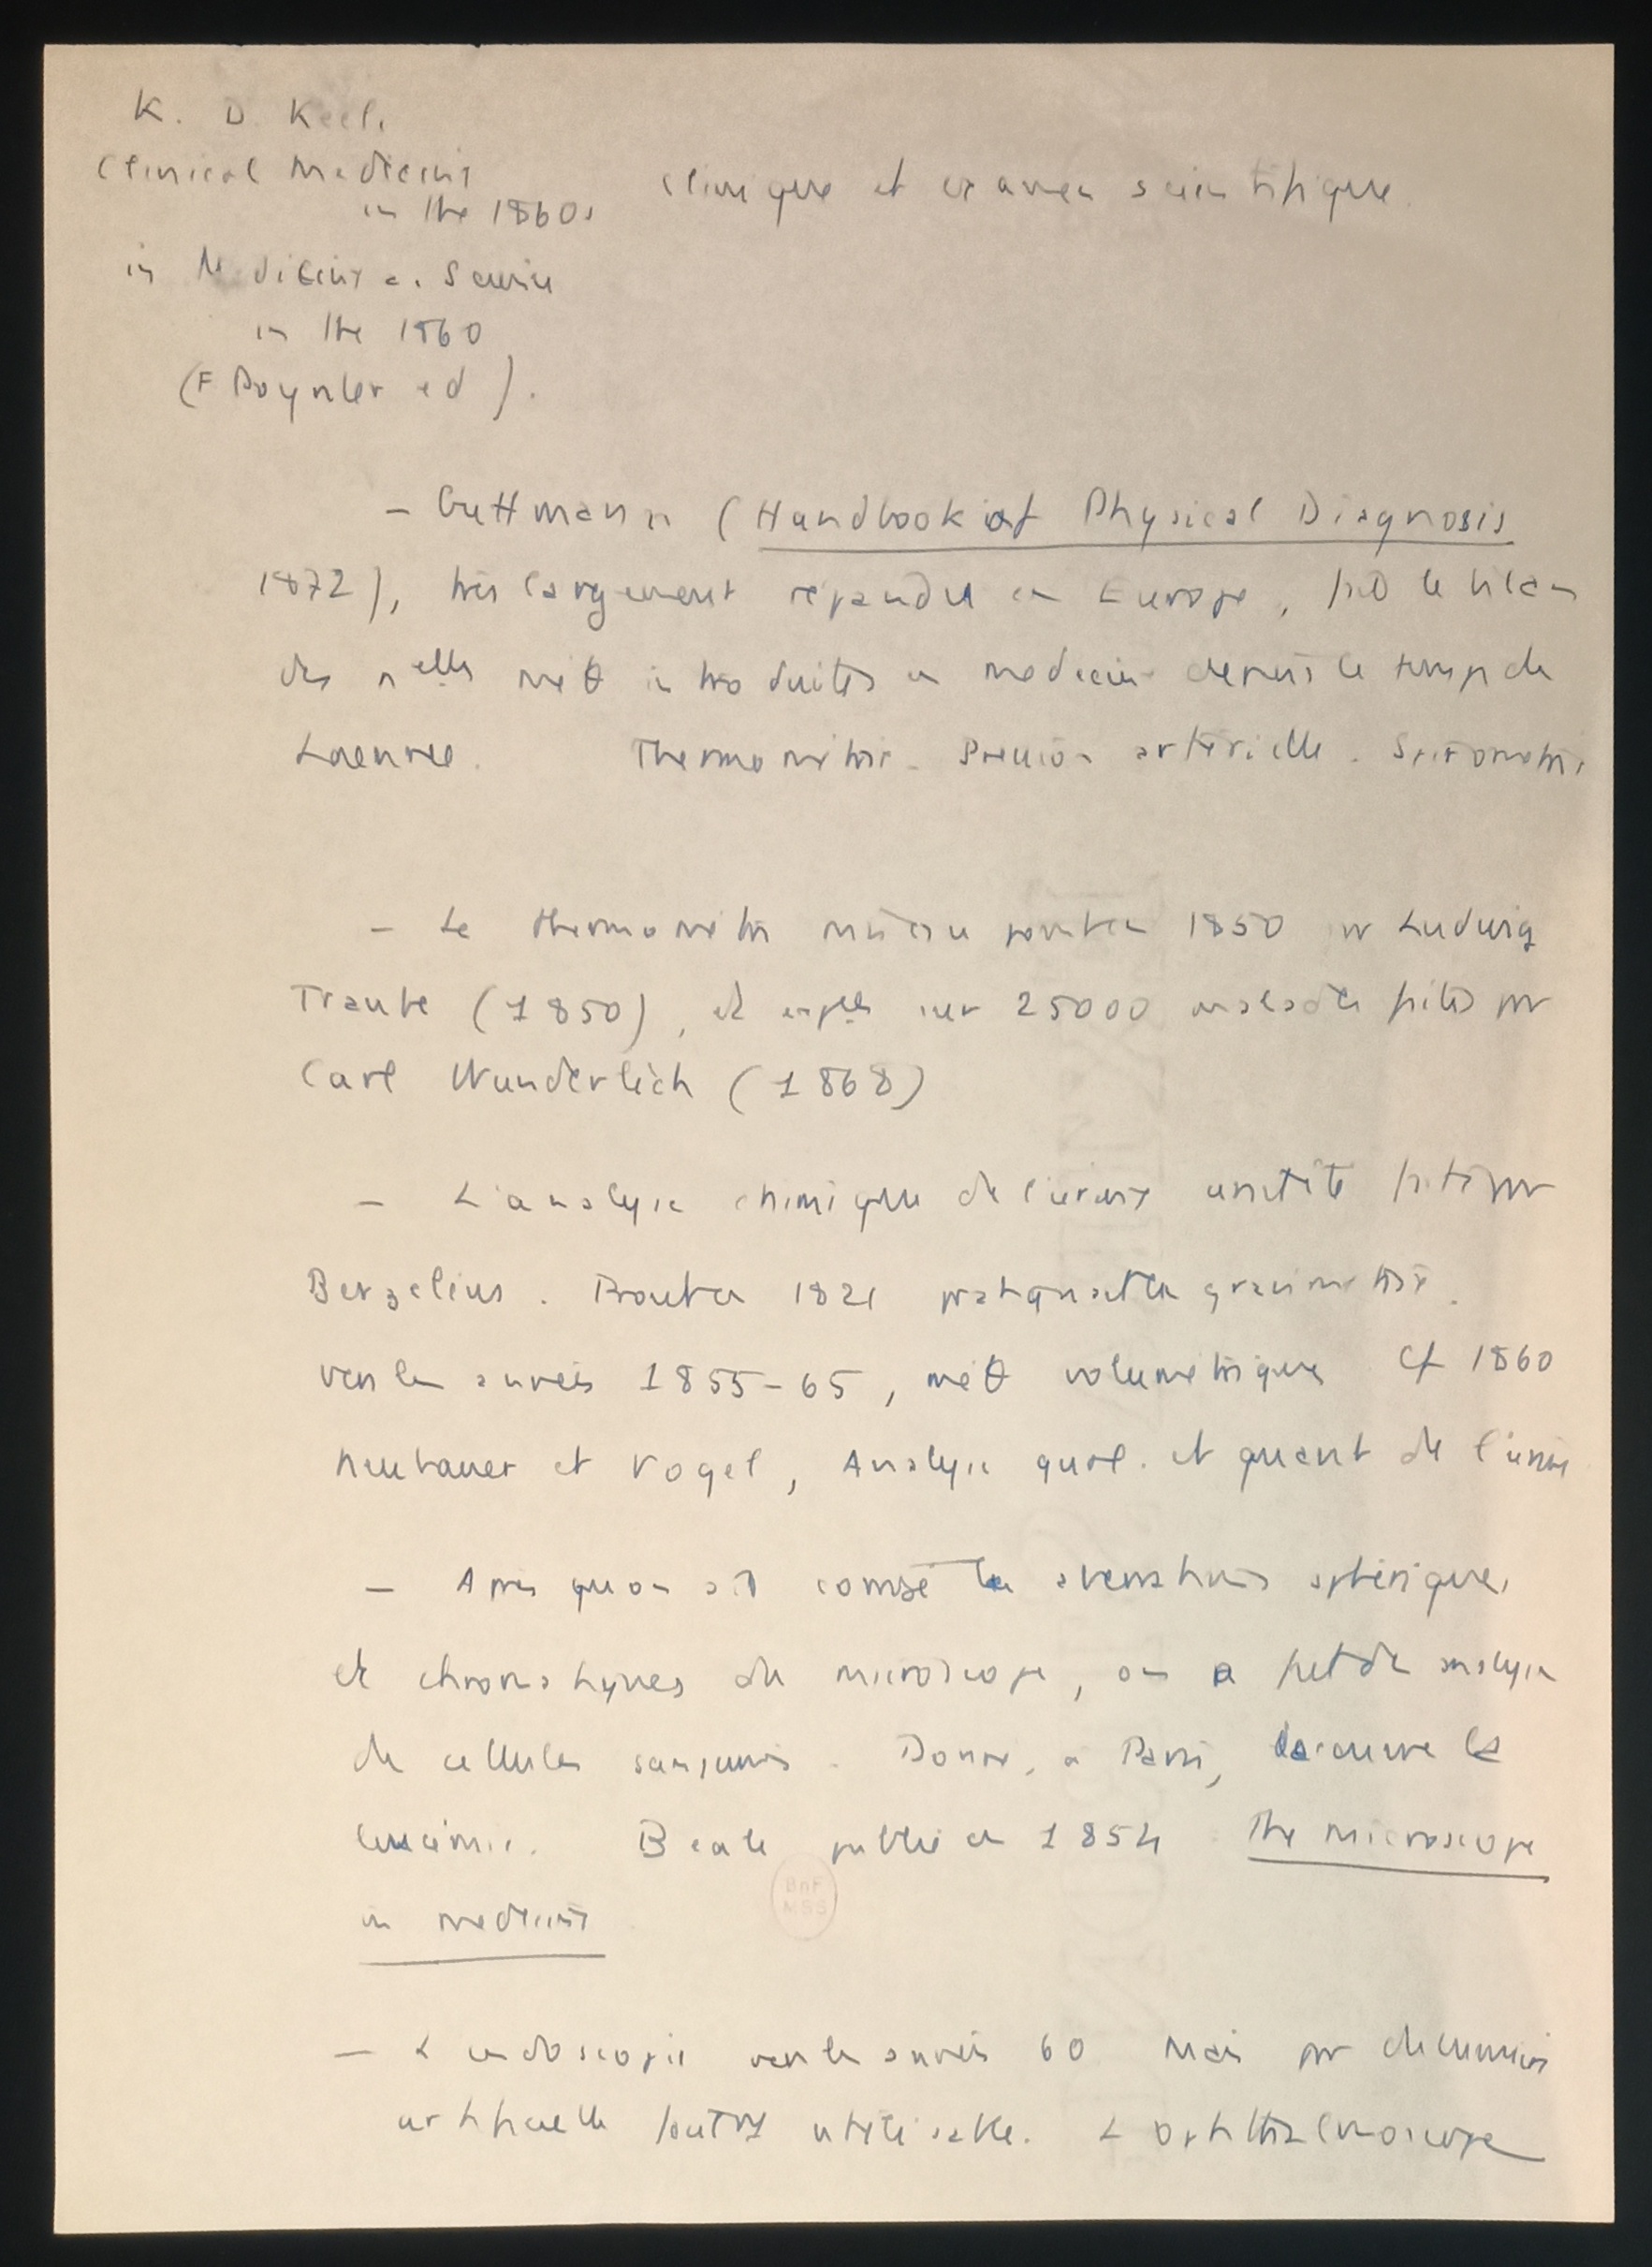 K. D. Keele
Clinical Medicine
in the 1860s
clinique et examen scientifique
in Medicine a. Science
in the 1860
(F Poynter ed).
- Guttmann (Handbook of Physical Diagnosis
1872), très largement répandu en Europe, fait le bilan
des nelles mét introduites en médecine depuis le temps de
Laennec. Thermométrie. Pression artérielle. Spirométrie
- Le thermomètre mis au point en 1850 par Ludwig
Traube (1850), et sur 25000 malades faites par
Carl Wunderlich (1868)
- L'analyse chimique de l'urine avait été faite par
Berzelius. Prout en 1821 pratiquait la gravimétrie.
vers les années 1855-65, mét volumétrique Cf 1860
Neubauer et Vogel, Analyse qual. et quant de l'urine
- Après qu'on ait corrigé les aberrations sphériques
et chromatiques du microscope, on a fait des analyses
de cellules sanguines. Donné, à Paris, découvre la
leucémie. Beale publie en 1854 The microscope
in medicine
- L'endoscopie vers les années 60 mais pas de lumière
artificielle utilisable. L'ophthalmoscope
BnF
MSS